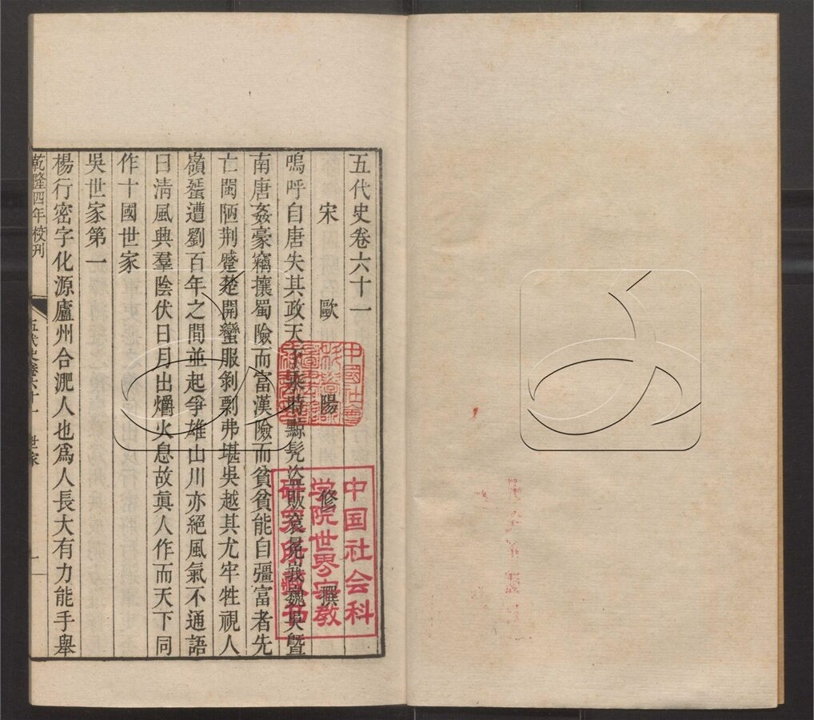 五代史卷六十一
宋歐陽修撰
嗚呼自唐失其政天下乘時黥髠盜販袞冕峩巍吳暨
南唐姦豪竊攘蜀險而富漢險而貧貧能自彊富者先
亡閩陋荆蹙楚開蠻服剝剽弗堪吳越其尤牢牲視人
嶺蜑遭劉百年之間並起爭雄山川亦絕風氣不通語
曰清風興羣陰伏日月出爝火息故眞人作而天下同
作十國世家
吳世家第一
楊行密字化源廬州合淝人也爲人長大有力能手舉
乾隆四年校刋
五代史卷六十一 世家
一
中国社会科
学院世界宗教
研究所藏书